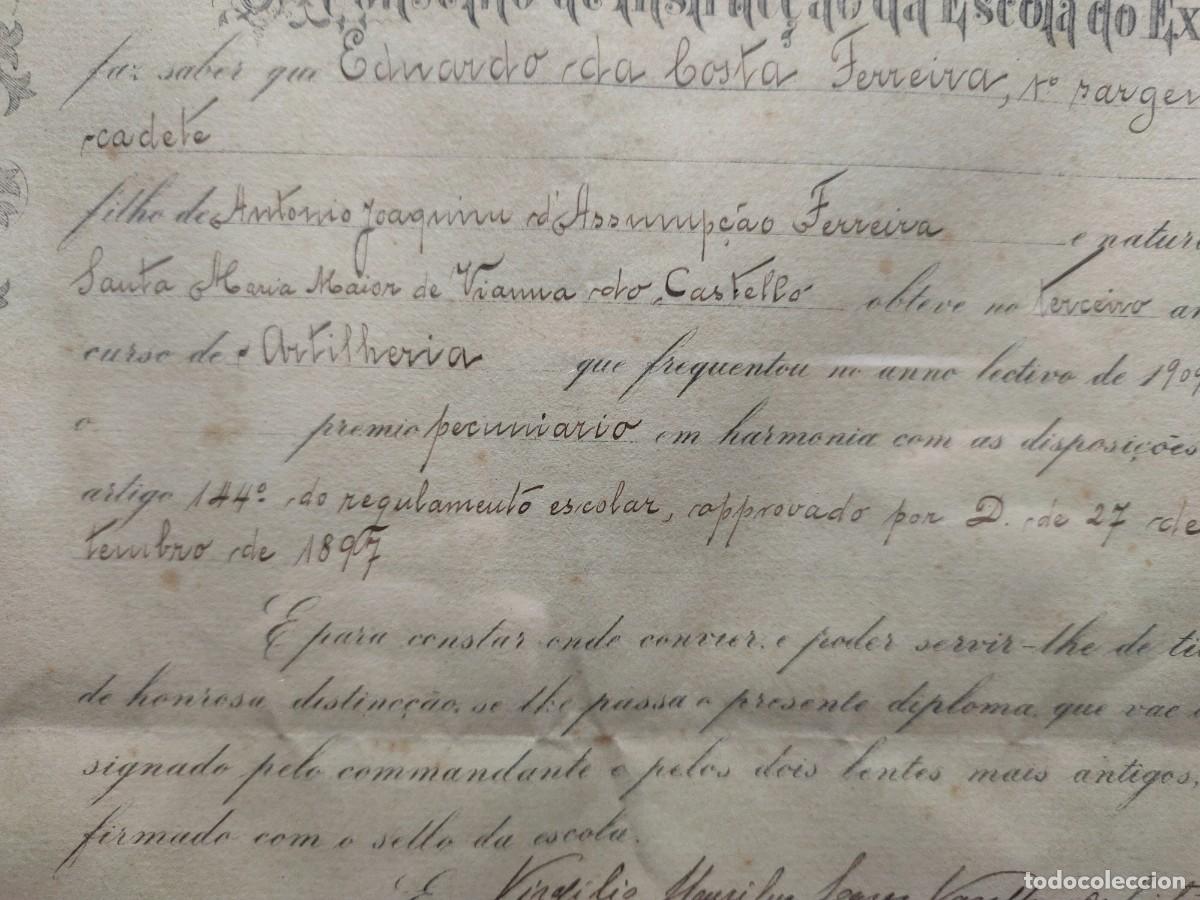 Conselho de Instrucção da Escola do Ex
faz saber que Eduardo da Costa Ferreira, 1º sargen
cadete
filho de Antonio Joaquim d'Assumpção Ferreira e natur
Santa Maria Maior de Vianna do Castello obteve no terceiro an
curso de Artilheria que frequentou no anno lectivo de 1909
o premio pecuniario em harmonia com as disposições
artigo 144º do regulamento escolar, approvado por D. de 27 de
tembro de 1897
E para constar onde convier, e poder servir-lhe de tit
de honrosa distincção, se lhe passa o presente diploma, que vae
signado pelo commandante e pelos dois lentes mais antigos,
firmado com o sello da escola.
todocoleccion